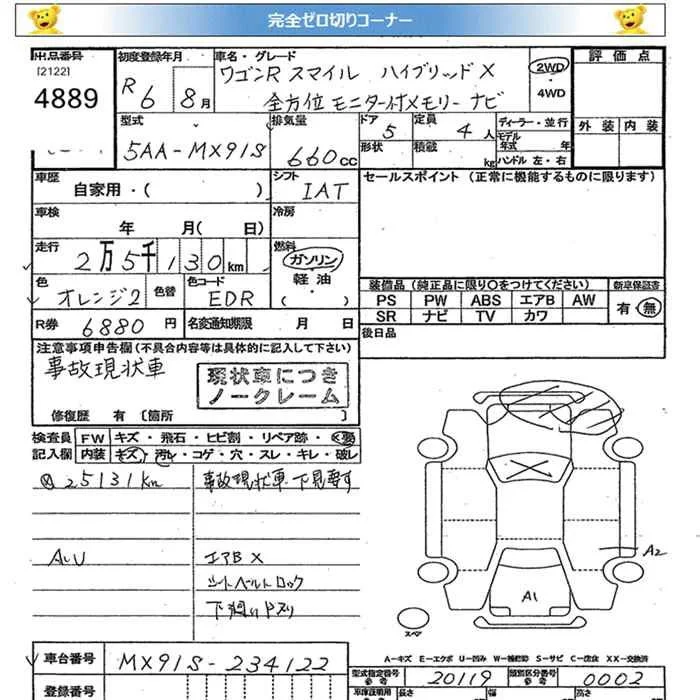 完全ゼロ切りコーナー
出品番号
[2122]
4889
初度登録年月
R 6 8月
車名・グレード
ワゴンR スマイル ハイブリッドX
全方位モニター付メモリーナビ
2WD
・
4WD
評価点
外装 内装
型式
5AA-MX91S
排気量
660cc
ドア 5
形状
定員 4人
積載 kg
ディーラー・並行
モデル
年式 年
ハンドル 左・右
車歴
自家用・( )
シフト
IAT
セールスポイント (正常に機能するものに限ります)
車検
年 月( 日)
冷房
走行
2万5千130km
燃料
ガソリン
軽油
・( )
色
オレンジ2
色替
色コード
EDR
装備品 (純正品に限り○をつけてください)
PS PW ABS エアB AW
SR ナビ TV カワ
新車保証書
有・無
R券 6880円
名変通知期限 月 日
後日品
注意事項申告欄(不具合内容等は具体的に記入して下さい)
事故現状車
現状車につき
ノークレーム
修復歴 有 [箇所 ]
検査員
記入欄
FW キズ・飛石・ヒビ割・リペア跡・
内装 キズ・汚レ・コゲ・穴・スレ・キレ・破レ
25131km
事故現状車 下見要す
AUU
エアB X
シートベルトロック
下廻りドスリ
A2
A1
スペア
A-キズ E-エクボ U-凹み W-補修跡 S-サビ C-腐食 XX-交換済
車台番号
MX91S-234122
型式指定番号
参考
20119
類別区分番号
参考
0002
登録番号
車庫証明用
長さ
幅
高さ